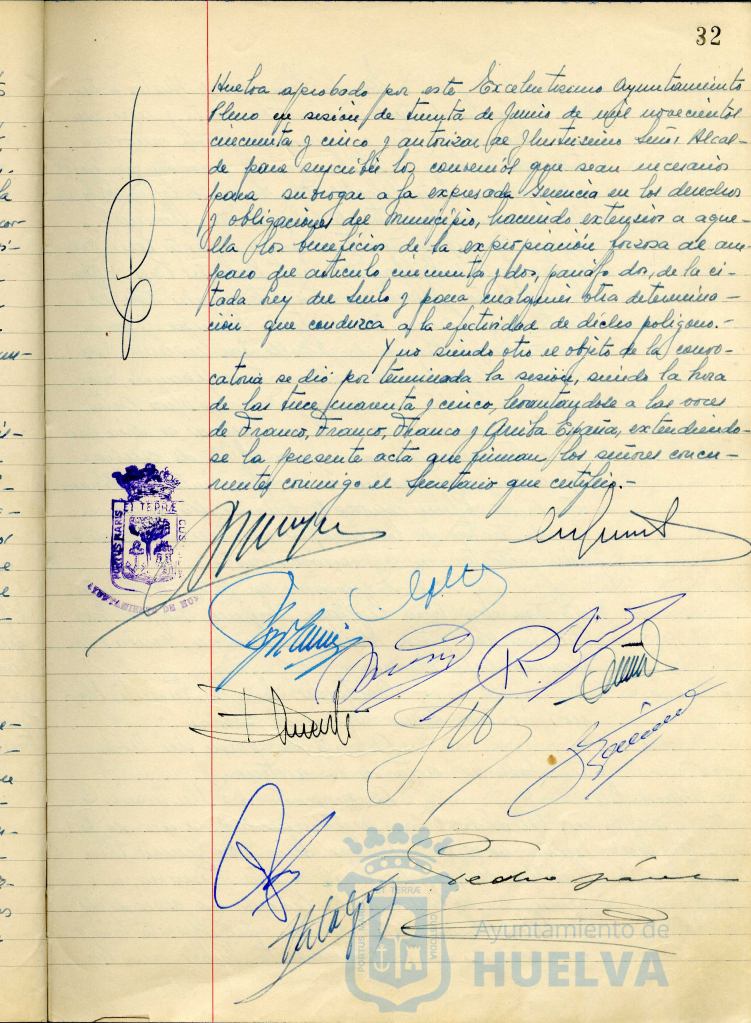 32
Huelva aprobado por este Excelentisimo Ayuntamiento
Pleno en sesión de treinta de Junio de mil novecientos
cincuenta y cinco y autorizar al Ilustrisimo Señor Alcal-
de para suscribir los convenios que sean necesarios
para subrogar a la expresada Gerencia en los derechos
y obligaciones del Municipio, haciendo extensivo a aque-
lla los beneficios de la expropiación forzosa al am-
paro del articulo cincuenta y dos, parrafo dos, de la ci-
tada Ley del Suelo y para cualquier otra determina-
ción que conduzca a la efectividad de dicho poligono.-
Y no siendo otro el objeto de la convo-
catoria se dió por terminada la sesión, siendo la hora
de las trece cuarenta y cinco, levantandose a las voces
de Franco, Franco, Franco y Arriba España, extendiendo-
se la presente acta que firman los señores concu-
rrentes conmigo el Secretario que certifico.-
PORTUS MARIS ET TERRÆ CUS
AYUNTAMIENTO DE HUE
Duarte
Pedro
Hidalgo
PORTUS ET TERRÆ CUSTODIA
Ayuntamiento de
HUELVA